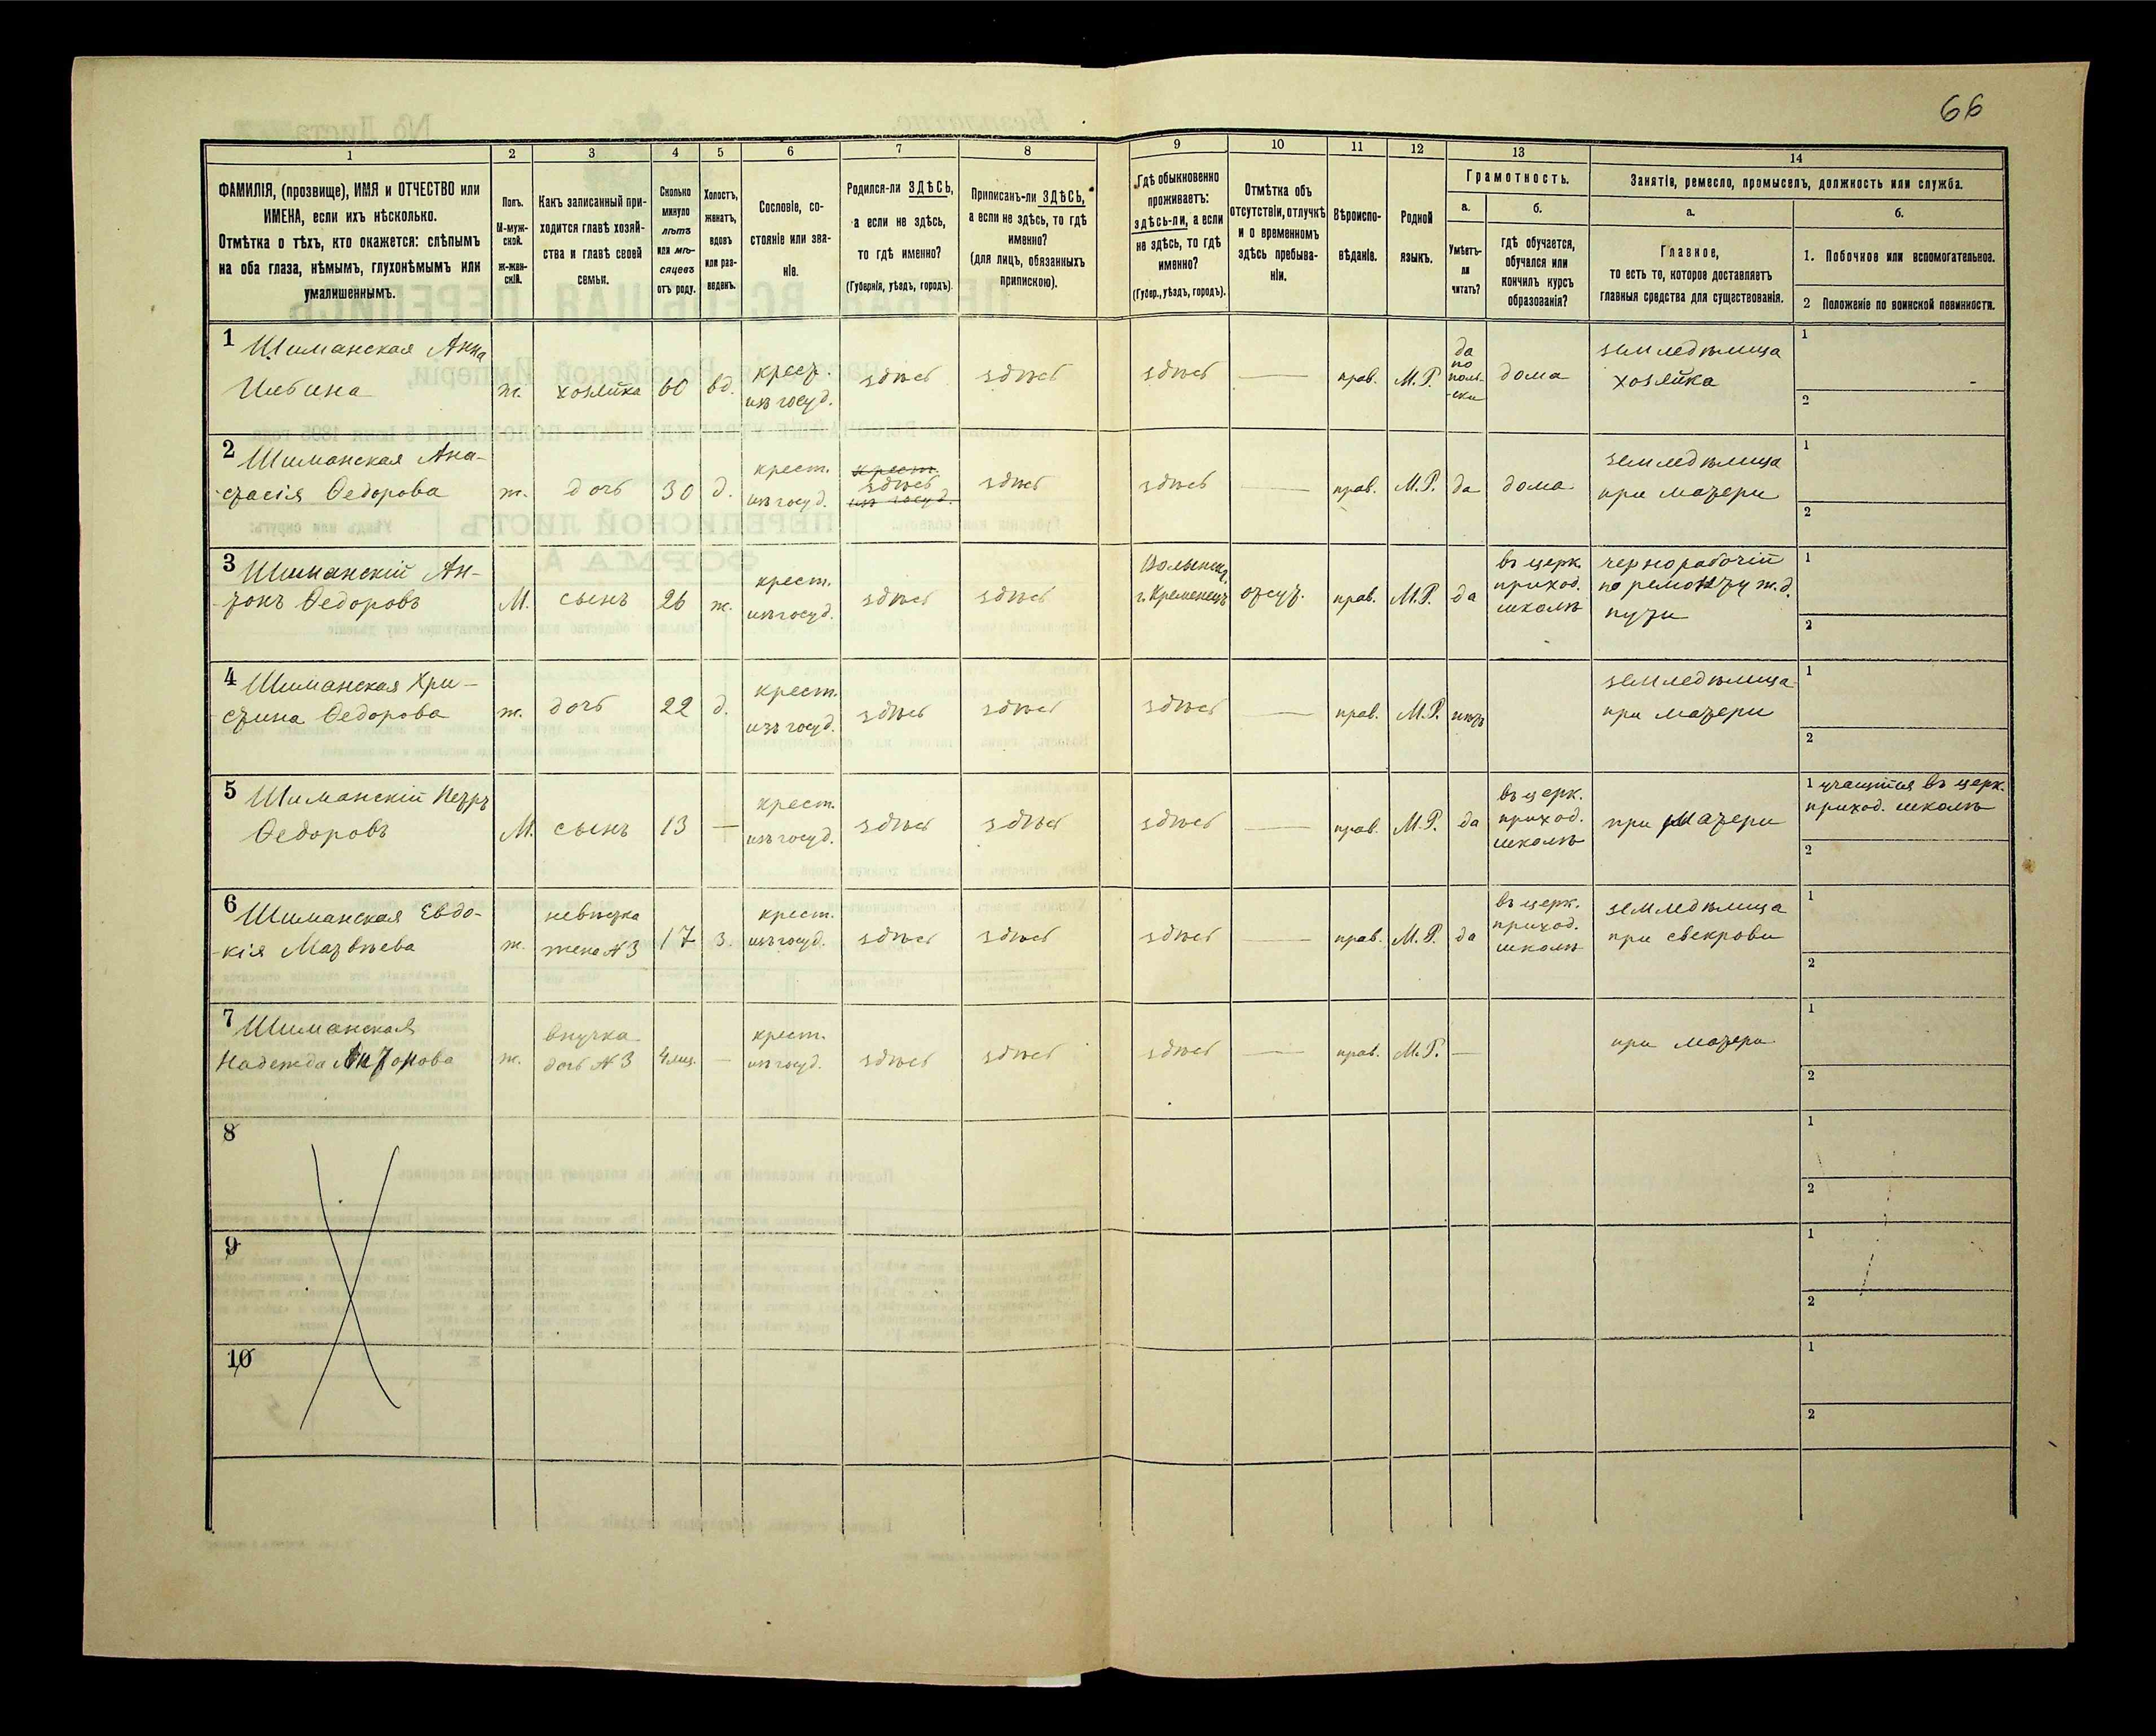 66
1 2 3 4 5 6 7 8 9 10 11 12 13 14
ФАМИЛІЯ, (прозвище), ИМЯ и ОТЧЕСТВО или
ИМЕНА, если ихъ нѣсколько.
Отмѣтка о тѣхъ, кто окажется: слѣпымъ
на оба глаза, нѣмымъ, глухонѣмымъ или
умалишеннымъ.
Полъ.
М-муж-
ской.
ж-жен-
скій.
Какъ записанный при-
ходится главѣ хозяй-
ства и главѣ своей
семьи.
Сколько
минуло
лѣтъ
или мѣ-
сяцевъ
отъ роду.
Холостъ,
женатъ,
вдовъ
или раз-
веденъ.
Сословіе, со-
стояніе или зва-
ніе.
Родился-ли ЗДѢСЬ,
а если не здѣсь,
то гдѣ именно?
(Губернія, уѣздъ, городъ)
Приписанъ-ли ЗДѢСЬ,
а если не здѣсь, то гдѣ
именно?
(для лицъ, обязанныхъ
припискою).
Гдѣ обыкновенно
проживаетъ:
здѣсь-ли, а если
не здѣсь, то гдѣ
именно?
(Губер., уѣздъ, городъ).
Отмѣтка объ
отсутствіи, отлучкѣ
и о временномъ
здѣсь пребыва-
ніи.
Вѣроиспо-
вѣданіе.
Родной
языкъ.
Грамотность.
а.
Умѣетъ-
ли
читать?
б.
гдѣ обучается,
обучался или
кончилъ курсъ
образованія?
Занятіе, ремесло, промыселъ, должность или служба.
а.
Главное,
то есть то, которое доставляетъ
главныя средства для существованія.
б.
1. Побочное или вспомогательное.
2 Положеніе по воинской повинности.
1 Шиманская Анна
Ильина
ж.
хозяйка
60
вд.
крест.
изъ госуд.
здѣсь
здѣсь
здѣсь
—
прав.
М.Р.
да
по
поль-
-ски
дома
земледѣлица
хозяйка
1
2
2 Шиманская Ана-
-стасія Ѳедорова
ж.
дочь
30
д.
крест.
изъ госуд.
крест.
здѣсь
изъ госуд.
здѣсь
здѣсь
прав.
М.Р.
да
дома
земледѣлица
при матери
1
2
3 Шиманскій Ан-
-тонъ Ѳедоровъ
М.
сынъ
26
ж.
крест.
изъ госуд.
здѣсь
здѣсь
Волынск.
г. Кременецъ
отсут.
прав.
М.Р.
да
въ церк.
приход.
школѣ
чернорабочій
по ремонту ж.д.
пути
1
2
4 Шиманская Хри-
-стина Ѳедорова
ж.
дочь
22
д.
крест.
изъ госуд.
здѣсь
здѣсь
здѣсь
—
прав.
М.Р.
нѣтъ
земледѣлица
при матери
1
2
5 Шиманскій Петръ
Ѳедоровъ
М.
сынъ
13
—
крест.
изъ госуд.
здѣсь
здѣсь
здѣсь
—
прав.
М.Р.
да
въ церк.
приход.
школѣ
при матери
1 учащійся въ церк.
приход. школѣ
2
6 Шиманская Евдо-
-кія Матвѣева
ж.
невѣстка
жена №3
17
з.
крест.
изъ госуд.
здѣсь
здѣсь
здѣсь
—
прав.
М.Р.
да
въ церк.
приход.
школѣ
земледѣлица
при свекрови
1
2
7 Шиманская
Надежда Антонова
ж.
внучка
дочь №3
4 мѣс.
—
крест.
изъ госуд.
здѣсь
здѣсь
здѣсь
—
прав.
М.Р.
—
при матери
1
2
8
1
2
9
1
2
10
1
2